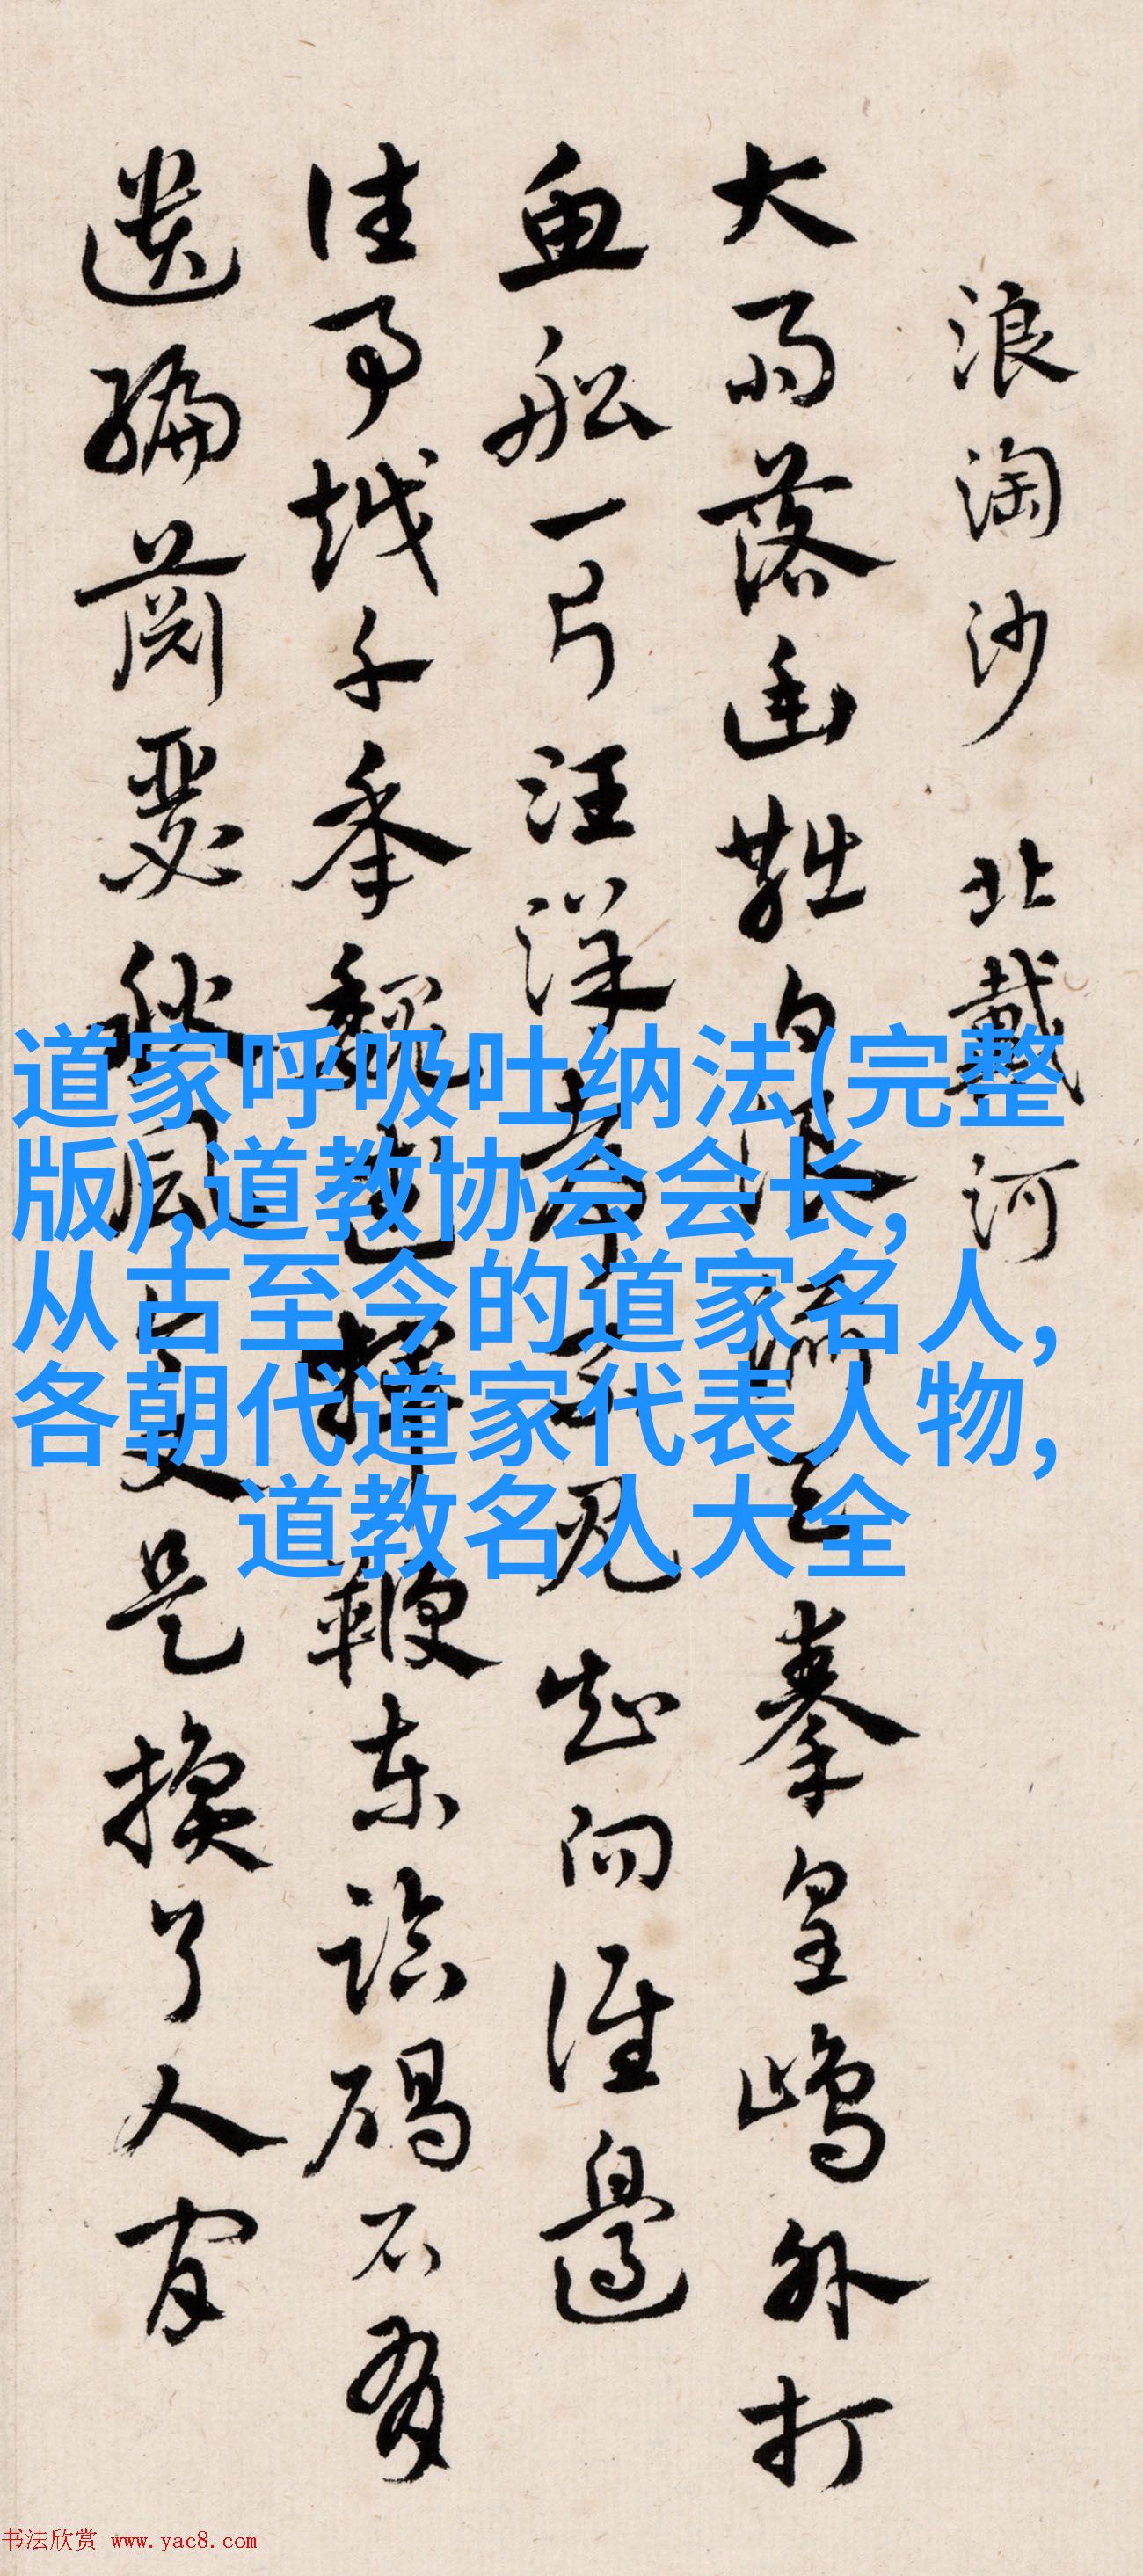 浪淘沙 北戴河
大雨落幽燕白浪滔天秦皇島外打
魚船一片汪洋都不見知向誰邊
往事越千年魏武揮鞭東臨碣石有
遺篇蕭瑟秋風今又是換了人間
道家呼吸吐纳法(完整
版),道教协会会长,
从古至今的道家名人,
各朝代道家代表人物,
道教名人大全
书法欣赏 www.yac8.com